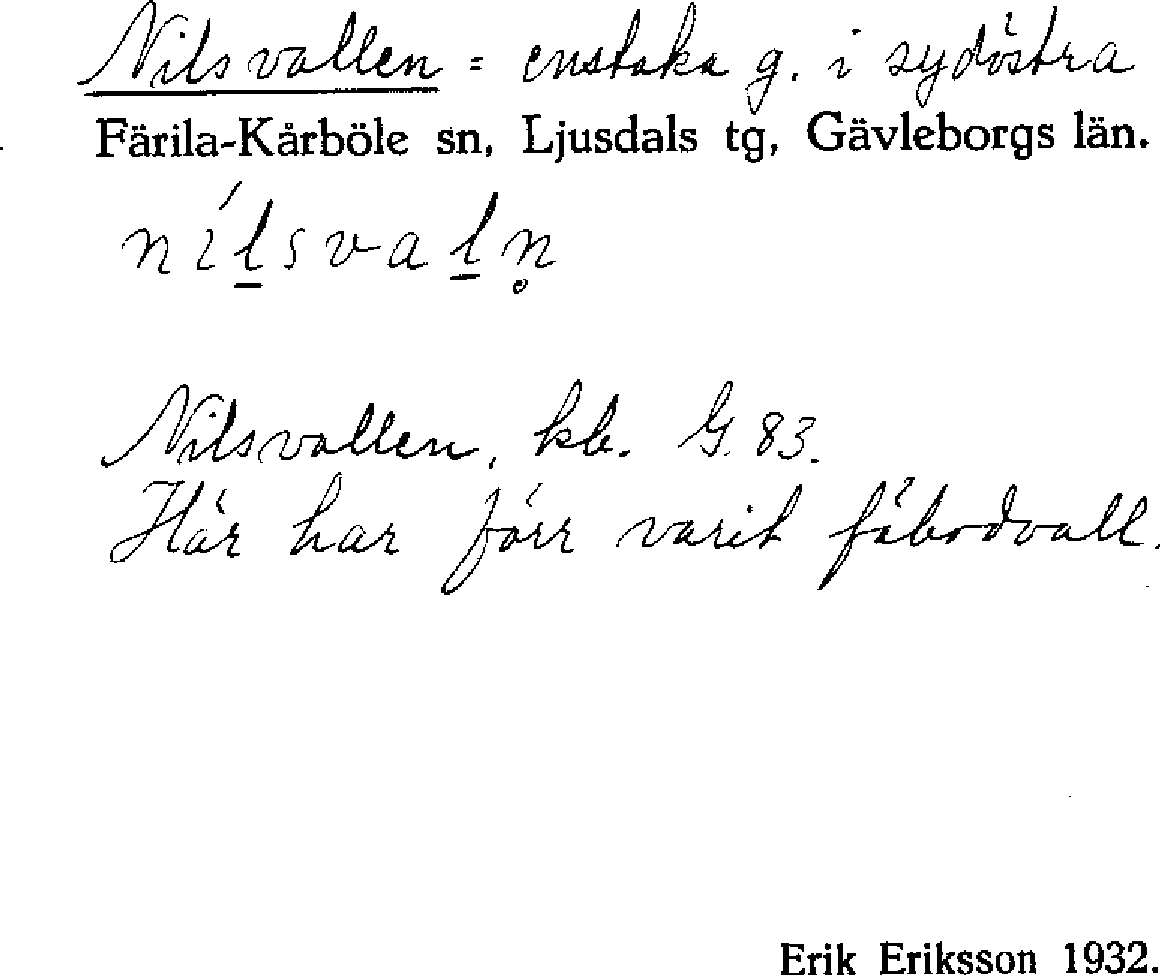 Nilsvallen = enstaka g. i sydöstra
Färila-Kårböle sn, Ljusdals tg, Gävleborgs län.
níl̠sval̠n̥
Nilsvallen, kb. G. 83.
Här har förr varit fäbodvall.
Erik Eriksson 1932.